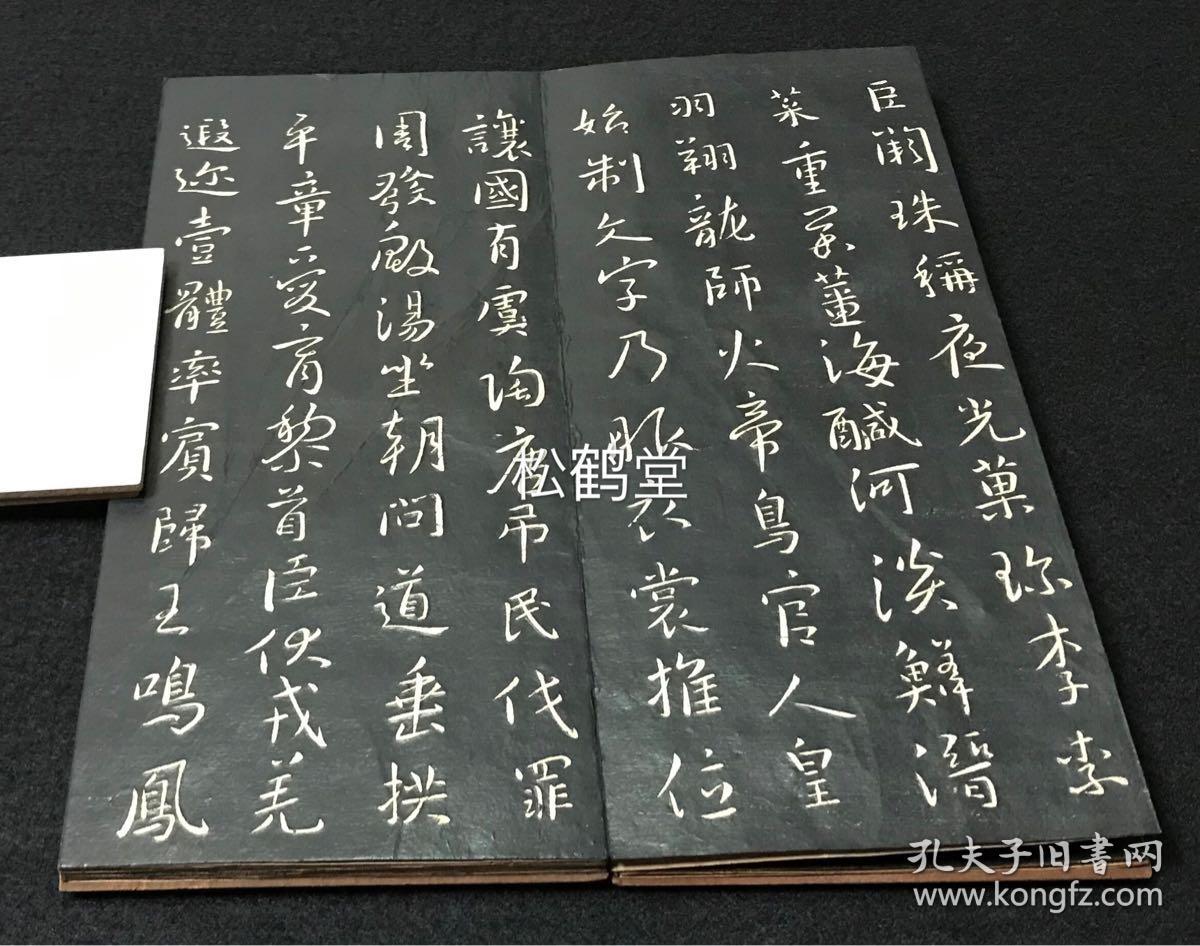 臣闕珠稱夜光菓珍李柰
菜重芥薑海醎河淡鱗潛
羽翔龍師火帝鳥官人皇
始制文字乃服衣裳推位
讓國有虞陶唐弔民伐罪
周發殷湯坐朝問道垂拱
平章愛育黎首臣伏戎羌
遐迩壹體率賓歸王鳴鳳
松鹤堂
孔夫子旧書网
www.kongfz.com